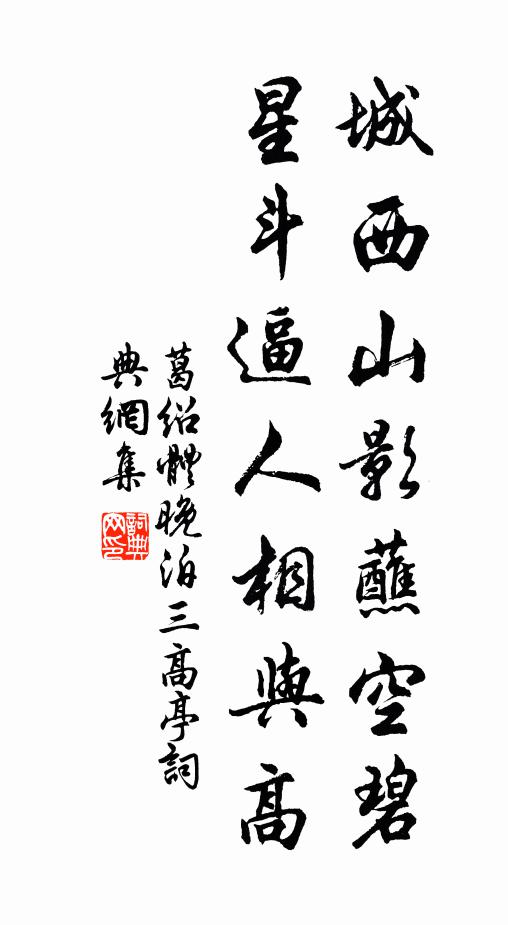 城西山影蘸空碧
星斗逼人相與高
葛紹體晚泊三高亭詞
典網集
詞典
网印